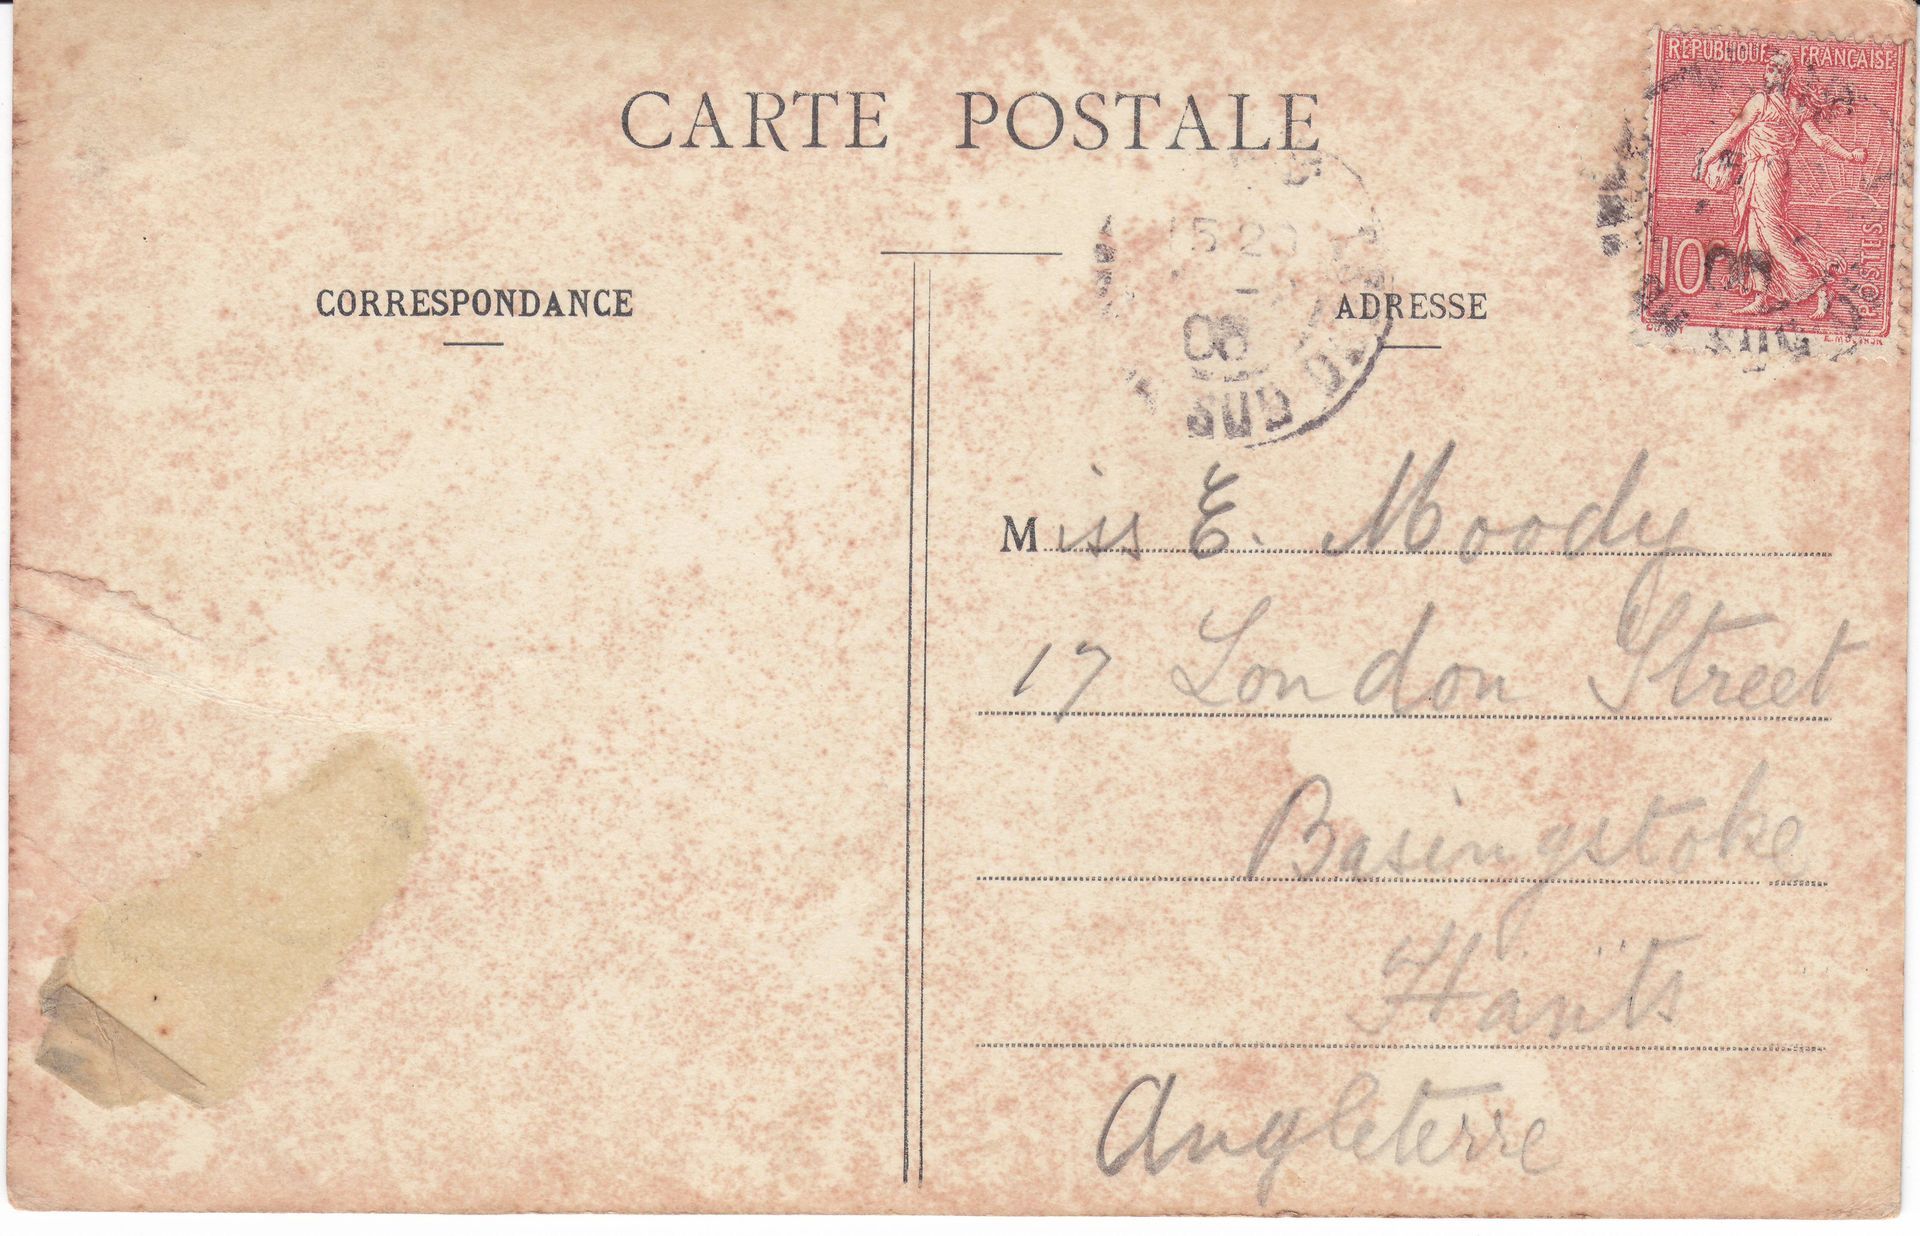 CARTE POSTALE
RÉPUBLIQUE FRANÇAISE
10
POSTES
15 20
08
SUD
CORRESPONDANCE
ADRESSE
Miss E. Moody
17 London Street
Basingstoke
Hants
Angleterre